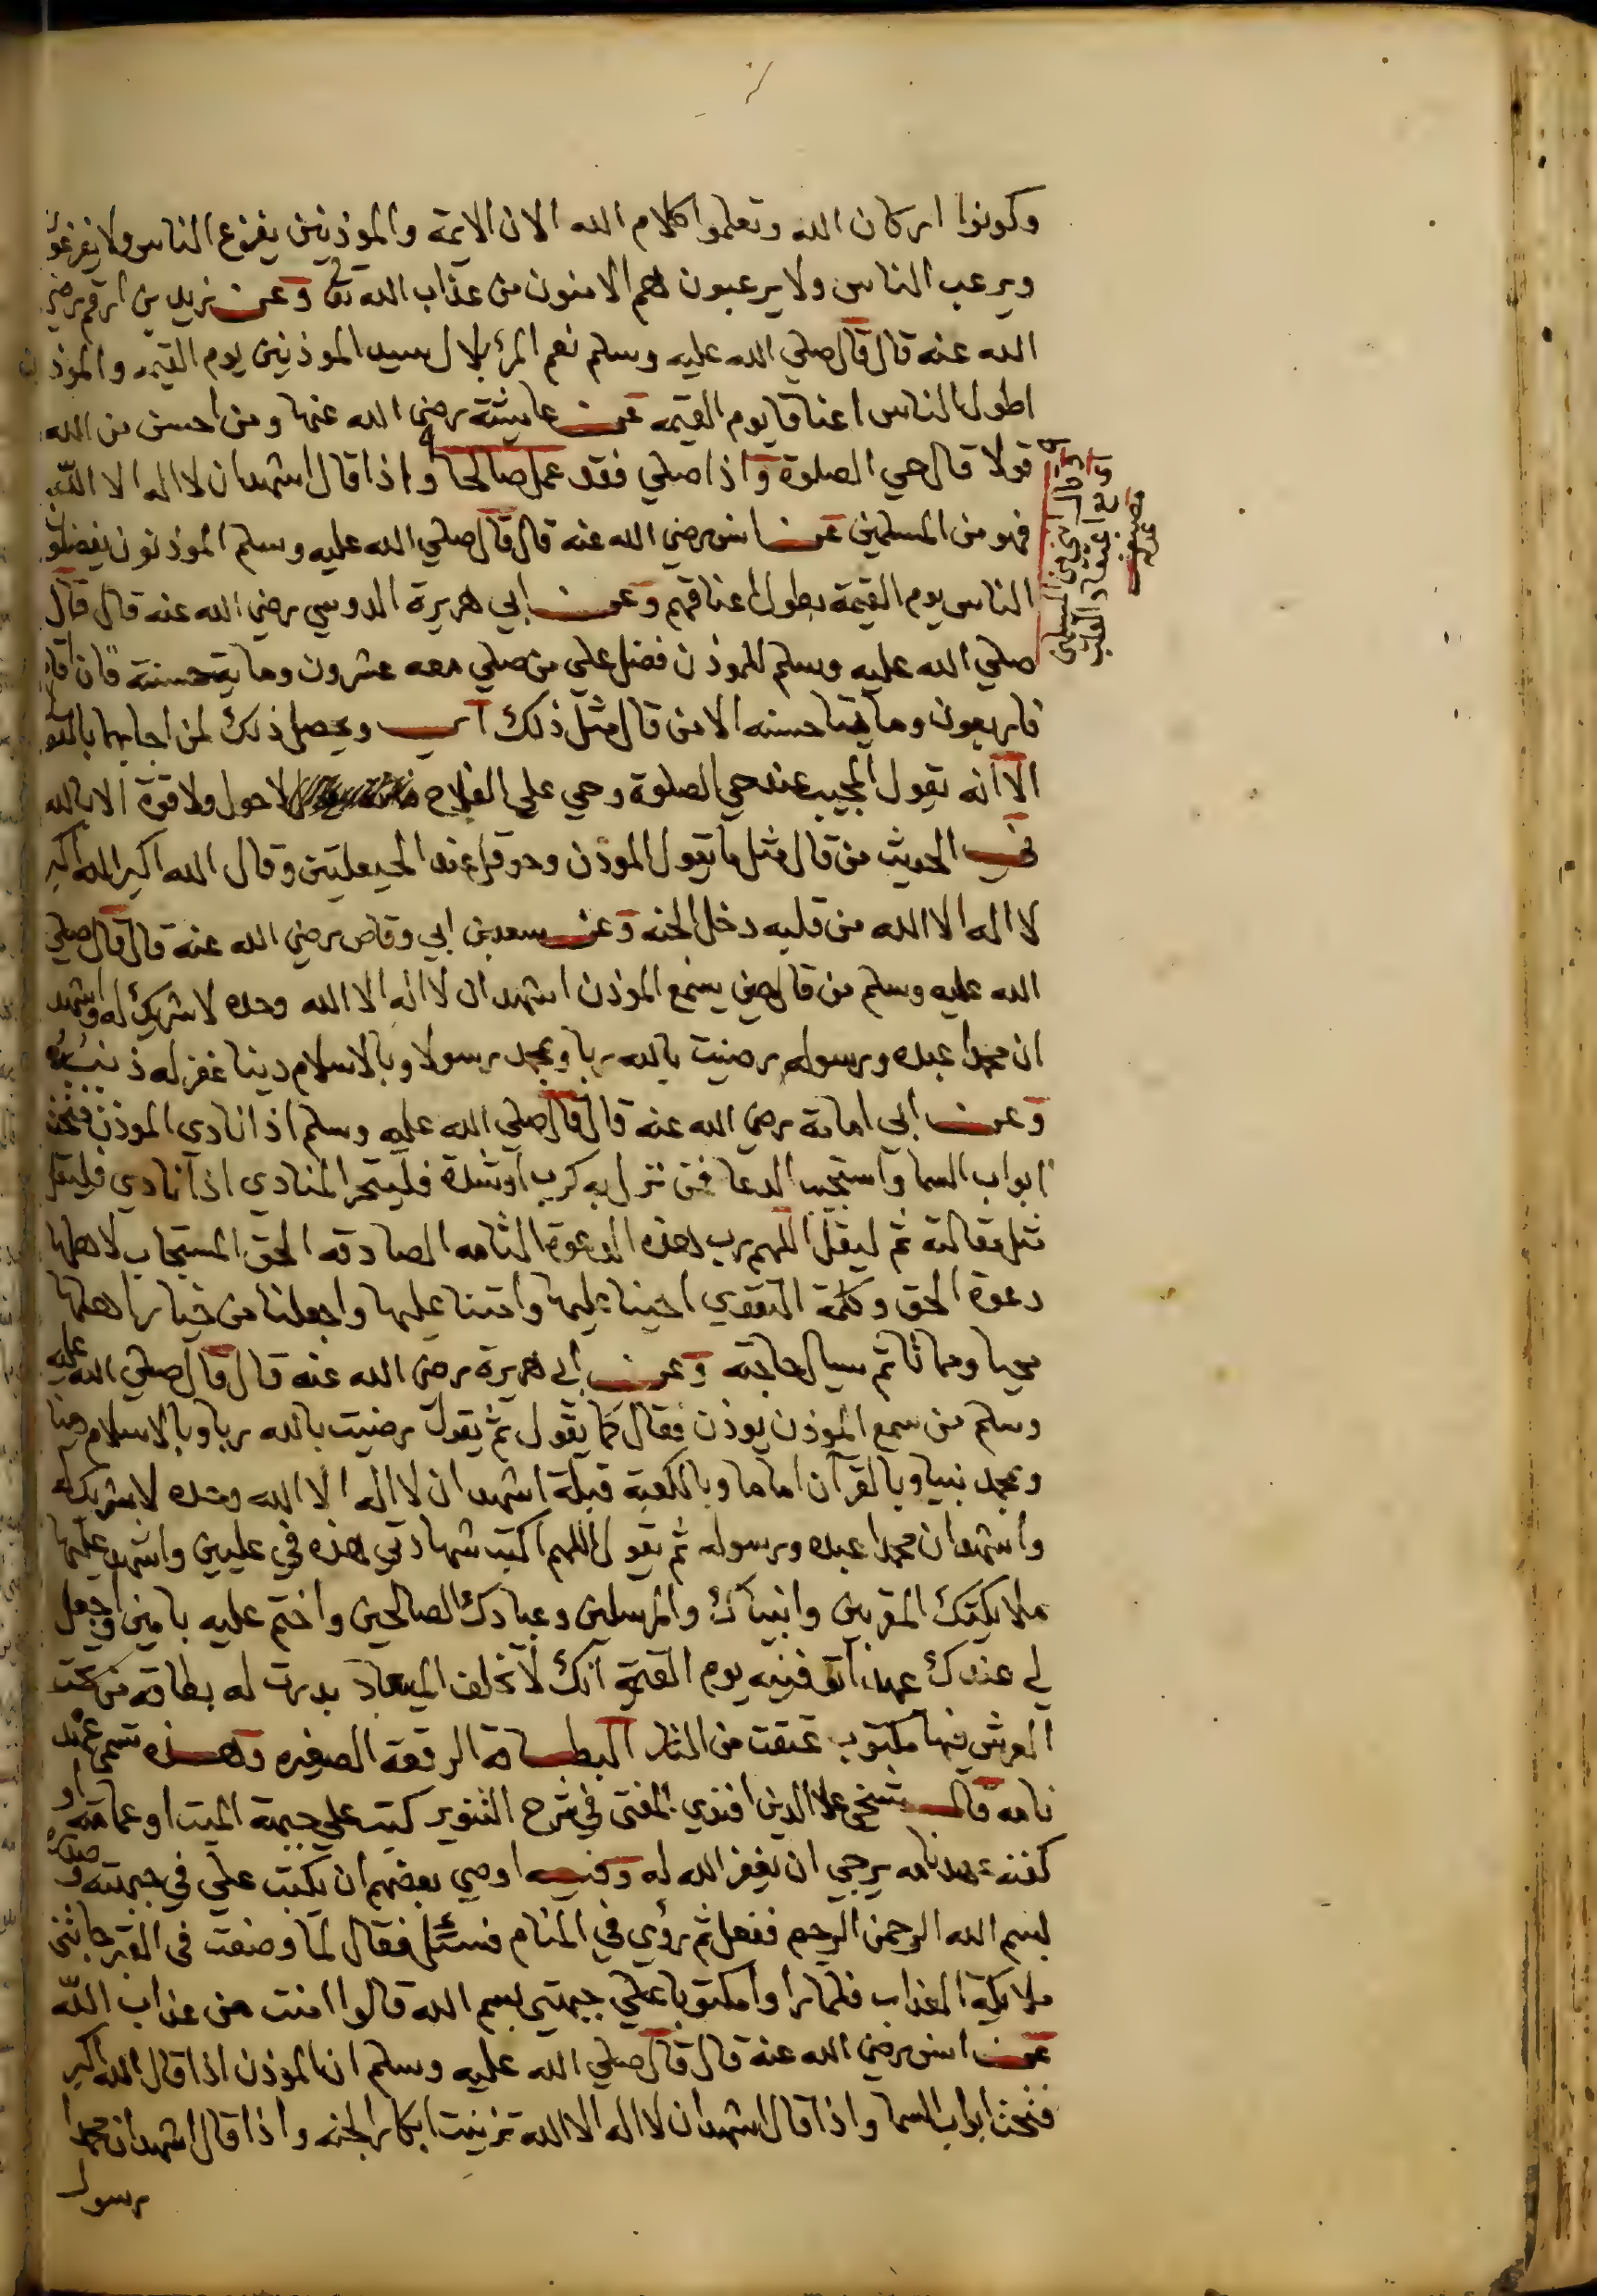 وكونوا اركان الله وتعلموا كلام الله الا ان الايمة والموذنين يفزع الناس ولا يفزعون
ويرعب الناس ولا يرعبون هم الامنون من عذاب الله تعا وعن زيد بن ارقم رضي
الله عنه قال قال صلي الله عليه وسلم نعم المرء بلال سيد الموذنين يوم القيمه والموذنون
اطول الناس اعناقا يوم القيمه عن عايشة رضي الله عنها ومن احسن من الله
قولا قال حي الصلوة واذا صلي فقد عمل صالحا واذا قال اشهد ان لا اله الا الله
فهو من المسلمين عن انس رضي الله عنه قال قال صلي الله عليه وسلم الموذنون يفضلون
الناس يوم القيمة بطول اعناقهم وعن ابي هريرة الدوسي رضي الله عنه قال قال
صلي الله عليه وسلم للموذن فضل علي من صلي معه عشرون ومايه حسنة فان اقام
فاربعون ومايتا حسنه الا من قال مثل ذلك اي ويحصل ذلك لمن اجابهما بالقول
الا انه يقول المجيب عند حي الصلوة وحي علي الفلاح لا حول ولا قوة الا بالله
في الحديث من قال مثل ما يقول الموذن وحوقل عند الحيعلتين وقال الله اكبر الله اكبر
لا اله الا الله من قلبه دخل الجنه وعن سعد بن ابي وقاص رضي الله عنه قال قال صلي
الله عليه وسلم من قال حين يسمع الموذن اشهد ان لا اله الا الله وحده لا شريك له واشهد
ان محمدا عبده ورسوله رضيت بالله ربا وبمحمد رسولا وبالاسلام دينا غفر له ذنبه
وعن ابي امامة رضي الله عنه قال قال صلي الله عليه وسلم اذا نادي الموذن فتحت
ابواب السما واستجيب الدعا فمن نزل به كرب او شدة فليتحر المنادي اذا نادي فليقل
مثل مقالته ثم ليقل اللهم رب هذه الدعوة التامه الصادقه الحق المستجاب لاهلها
دعوة الحق وكلمة التقوي احينا عليها وامتنا عليها واجعلنا من خيار اهلها
محيا ومماتا ثم يسال حاجته وعن ابي هريرة رضي الله عنه قال قال صلي الله عليه
وسلم من سمع الموذن يوذن فقال كما يقول ثم يقول رضيت بالله ربا وبالاسلام دينا
وبمحمد نبيا وبالقرآن اماما وبالكعبة قبلة اشهد ان لا اله الا الله وحده لا شريك له
واشهد ان محمدا عبده ورسوله ثم يقول اللهم اكتب شهادتي هذه في عليين واشهد عليها
ملايكتك المقربين وانبياك والمرسلين وعبادك الصالحين واختم عليه بامين واجعل
لي عندك عهدا توفنيه يوم القيمة انك لا تخلف الميعاد بدرت له بطاقه من تحت
العرش فيها مكتوب عتقت من النار البطاقة الرقعة الصغيره وهذه تسمي عهد
نامه قال شيخي علا الدين افندي المفتي في شرح التنوير كتب علي جبهة الميت او عمامته او
كفنه عهد نامه يرجي ان يغفر الله له وفيه اوصي بعضهم ان يكتب علي في جبهته وصدره
بسم الله الرحمن الرحيم ففعل ثم رؤي في المنام فسئل فقال لما وضعت في القبر جاءتني
ملايكة العذاب فلما راوا مكتوبا علي جبهتي بسم الله قالوا امنت من عذاب الله
عن انس رضي الله عنه قال قال صلي الله عليه وسلم ان الموذن اذا قال الله اكبر
فتحت ابواب السما واذا قال اشهد ان لا اله الا الله تزينت ابكار الجنه واذا قال اشهد ان محمدا
رسول
وقال انني من المسلمين